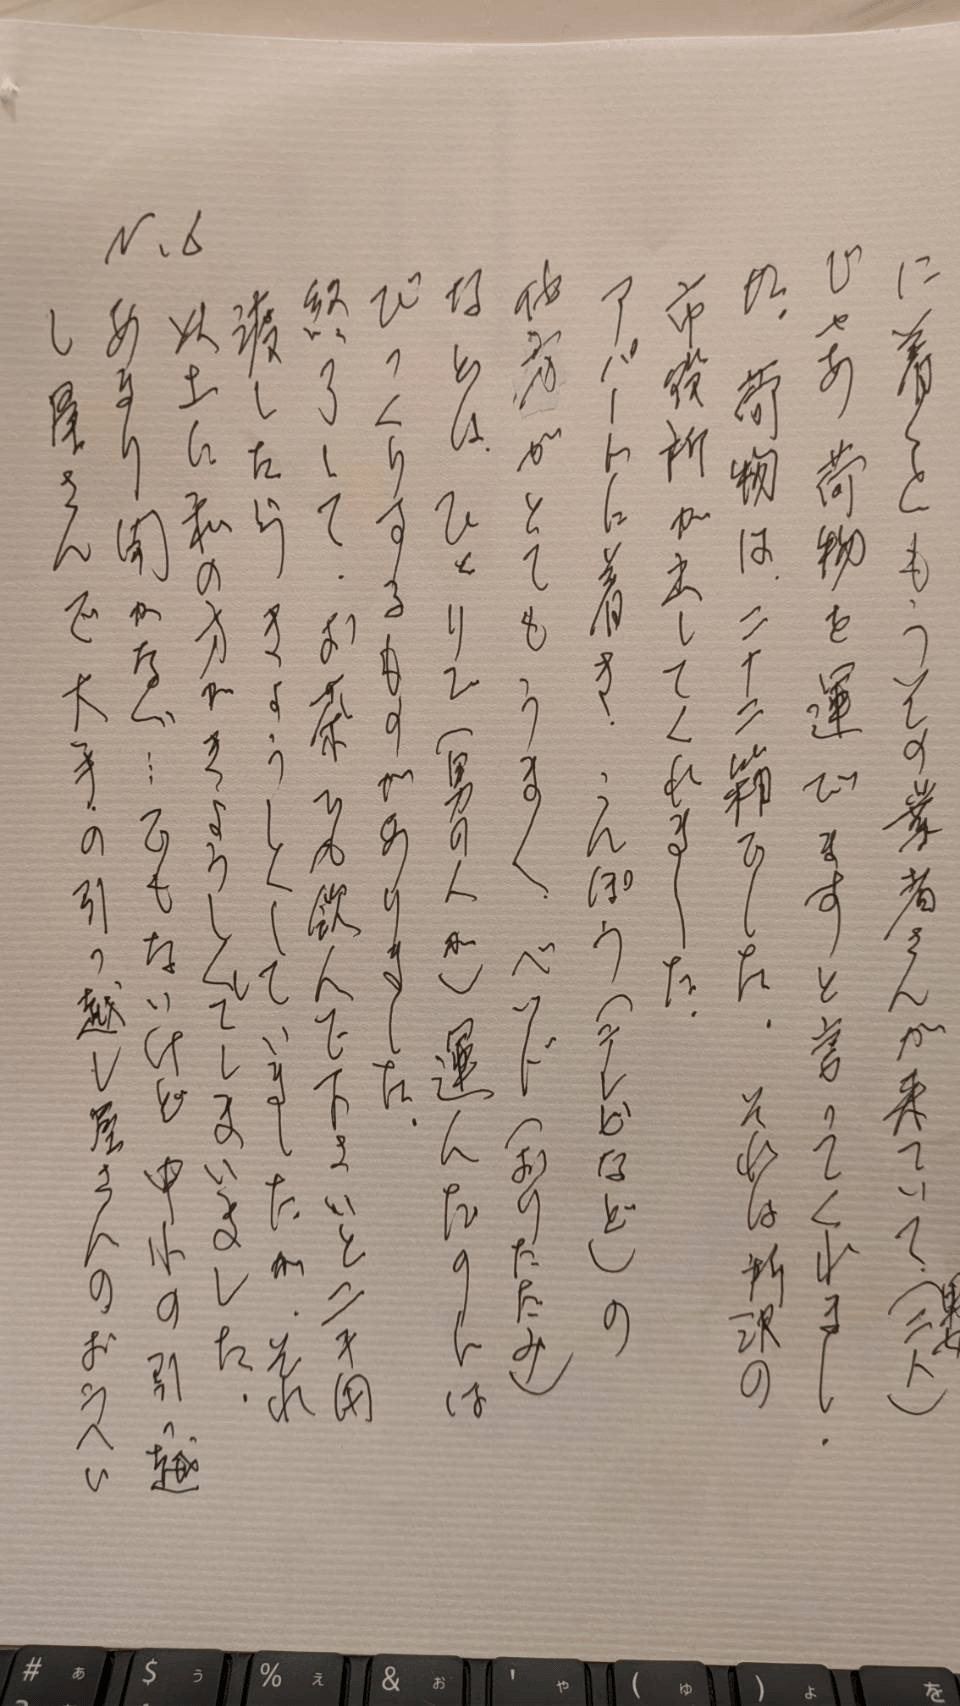 に着くともうその業者さんが来ていて、(二人)
男女
じゃあ荷物を運びますと言ってくれまし、
た。荷物は、二十二箱でした。それは所沢の
市役所が出してくれました。
アパートに着き、こんぽう(テレビなど)の
仕方がとてもうまく、ベッド(おりたたみ)
などは、ひとりで(男の人が)運んだのには
びっくりするものがありました。
終了して、お茶でも飲んで下さいと二千円
渡したら、きょうしゅくしていましたが、それ
以上に私の方がきょうしゅくしてしまいました。
あまり聞かない…でもないけど中小の引っ越
し屋さんで大手の引っ越し屋さんのおうへい
N.6
# あ
$ う
% え
& お
' や
( ゆ
) よ
を